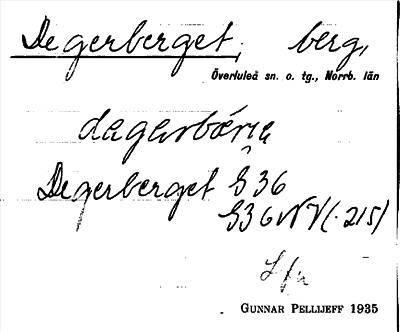 Degerberget, berg,
Överluleå sn. o. tg., Norrb. län
dagarbærje
Degerberget G 36
G36 NV (·215)
GUNNAR PELLIJEFF 1935